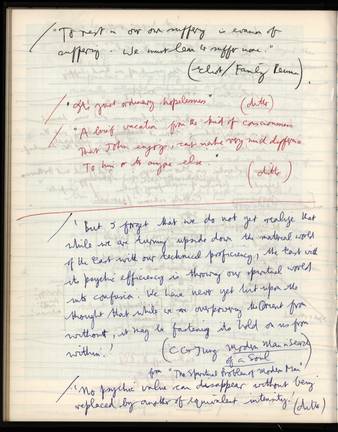 "To rest in our own suffering is evasion of
suffering. We must learn to suffer more."
(Eliot / Family Reunion)
"It's just ordinary hopelessness" (ditto)
"A brief vacation from the kind of consciousness
That John enjoys, can't make very much difference
To him or to anyone else" (ditto)
'But I forget that we do not yet realize that
while we are turning upside down the material world
of the East with our technical proficiency, the East with
its psychic efficiency is throwing our spiritual world
into confusion. We have never yet hit upon the
thought that while we are overpowering the Orient from
without, it may be fastening its hold on us from
within.' (CG Jung Modern Man in Search
of a Soul)
from "The Spiritual Problem of Modern Man"
'No psychic value can disappear without being
replaced by another of equivalent intensity.' (ditto)